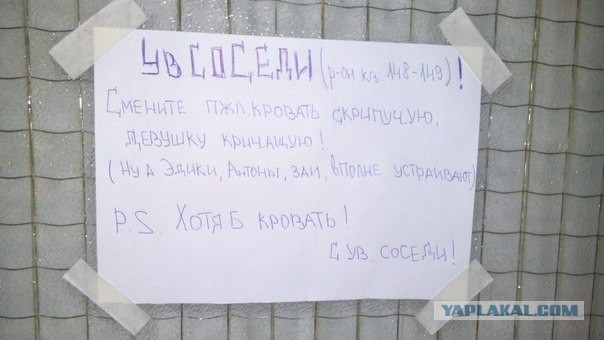 УВ СОСЕДИ (р-он кв 148-149)!
СМЕНИТЕ ПЖЛ. КРОВАТЬ СКРИПУЧУЮ,
ДЕВУШКУ КРИЧАЩУЮ!
(НУ А ЭДИКИ, АНТОНЫ, ЗАИ, ВПОЛНЕ УСТРАИВАЮТ)
P.S. ХОТЯ Б КРОВАТЬ!
С УВ СОСЕДИ!
YAPLAKAL.COM